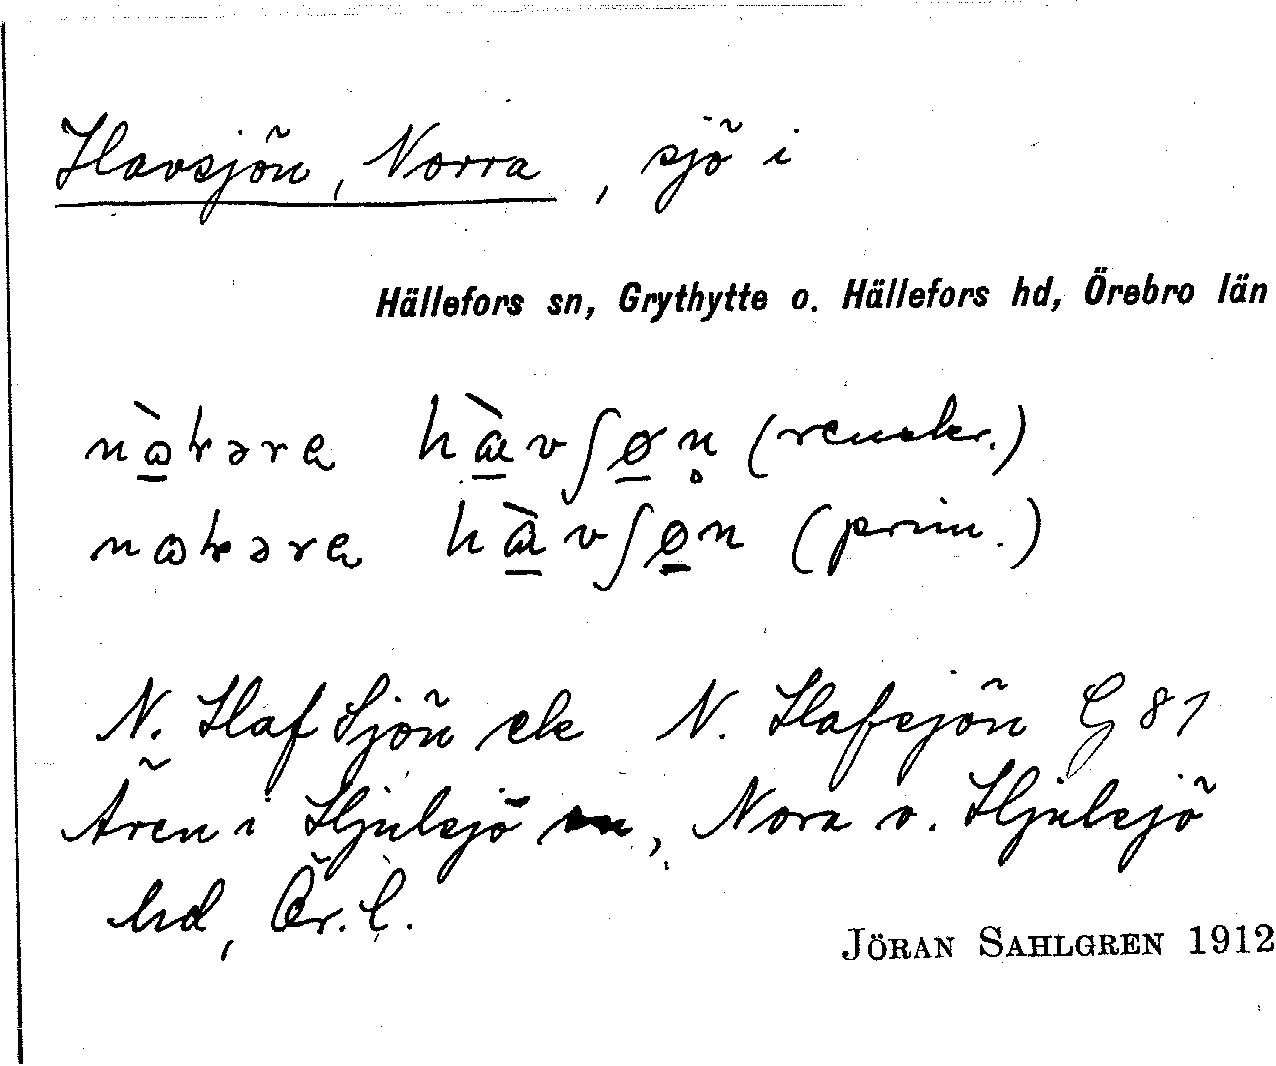 Havsjön, Norra, sjö i
Hällefors sn, Grythytte o. Hällefors hd, Örebro län
(renskr.)
(prim.)
N. Haf Sjön ek N. Hafsjön G 81
Ären i Hjulsjö sn, Nora o. Hjulsjö
hd, Ör. l.
JÖRAN SAHLGREN 1912